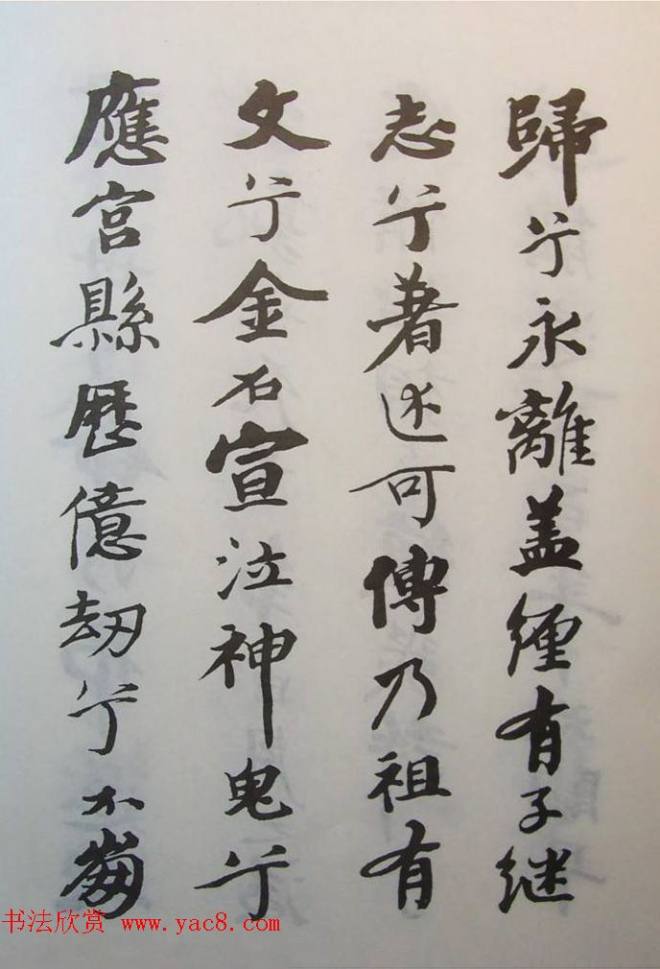 歸兮永離盖緾有子继
志兮著述可傳乃祖有
文兮金石宣泣神鬼兮
應宮縣歷億劫兮不
书法欣赏 www.yac8.com